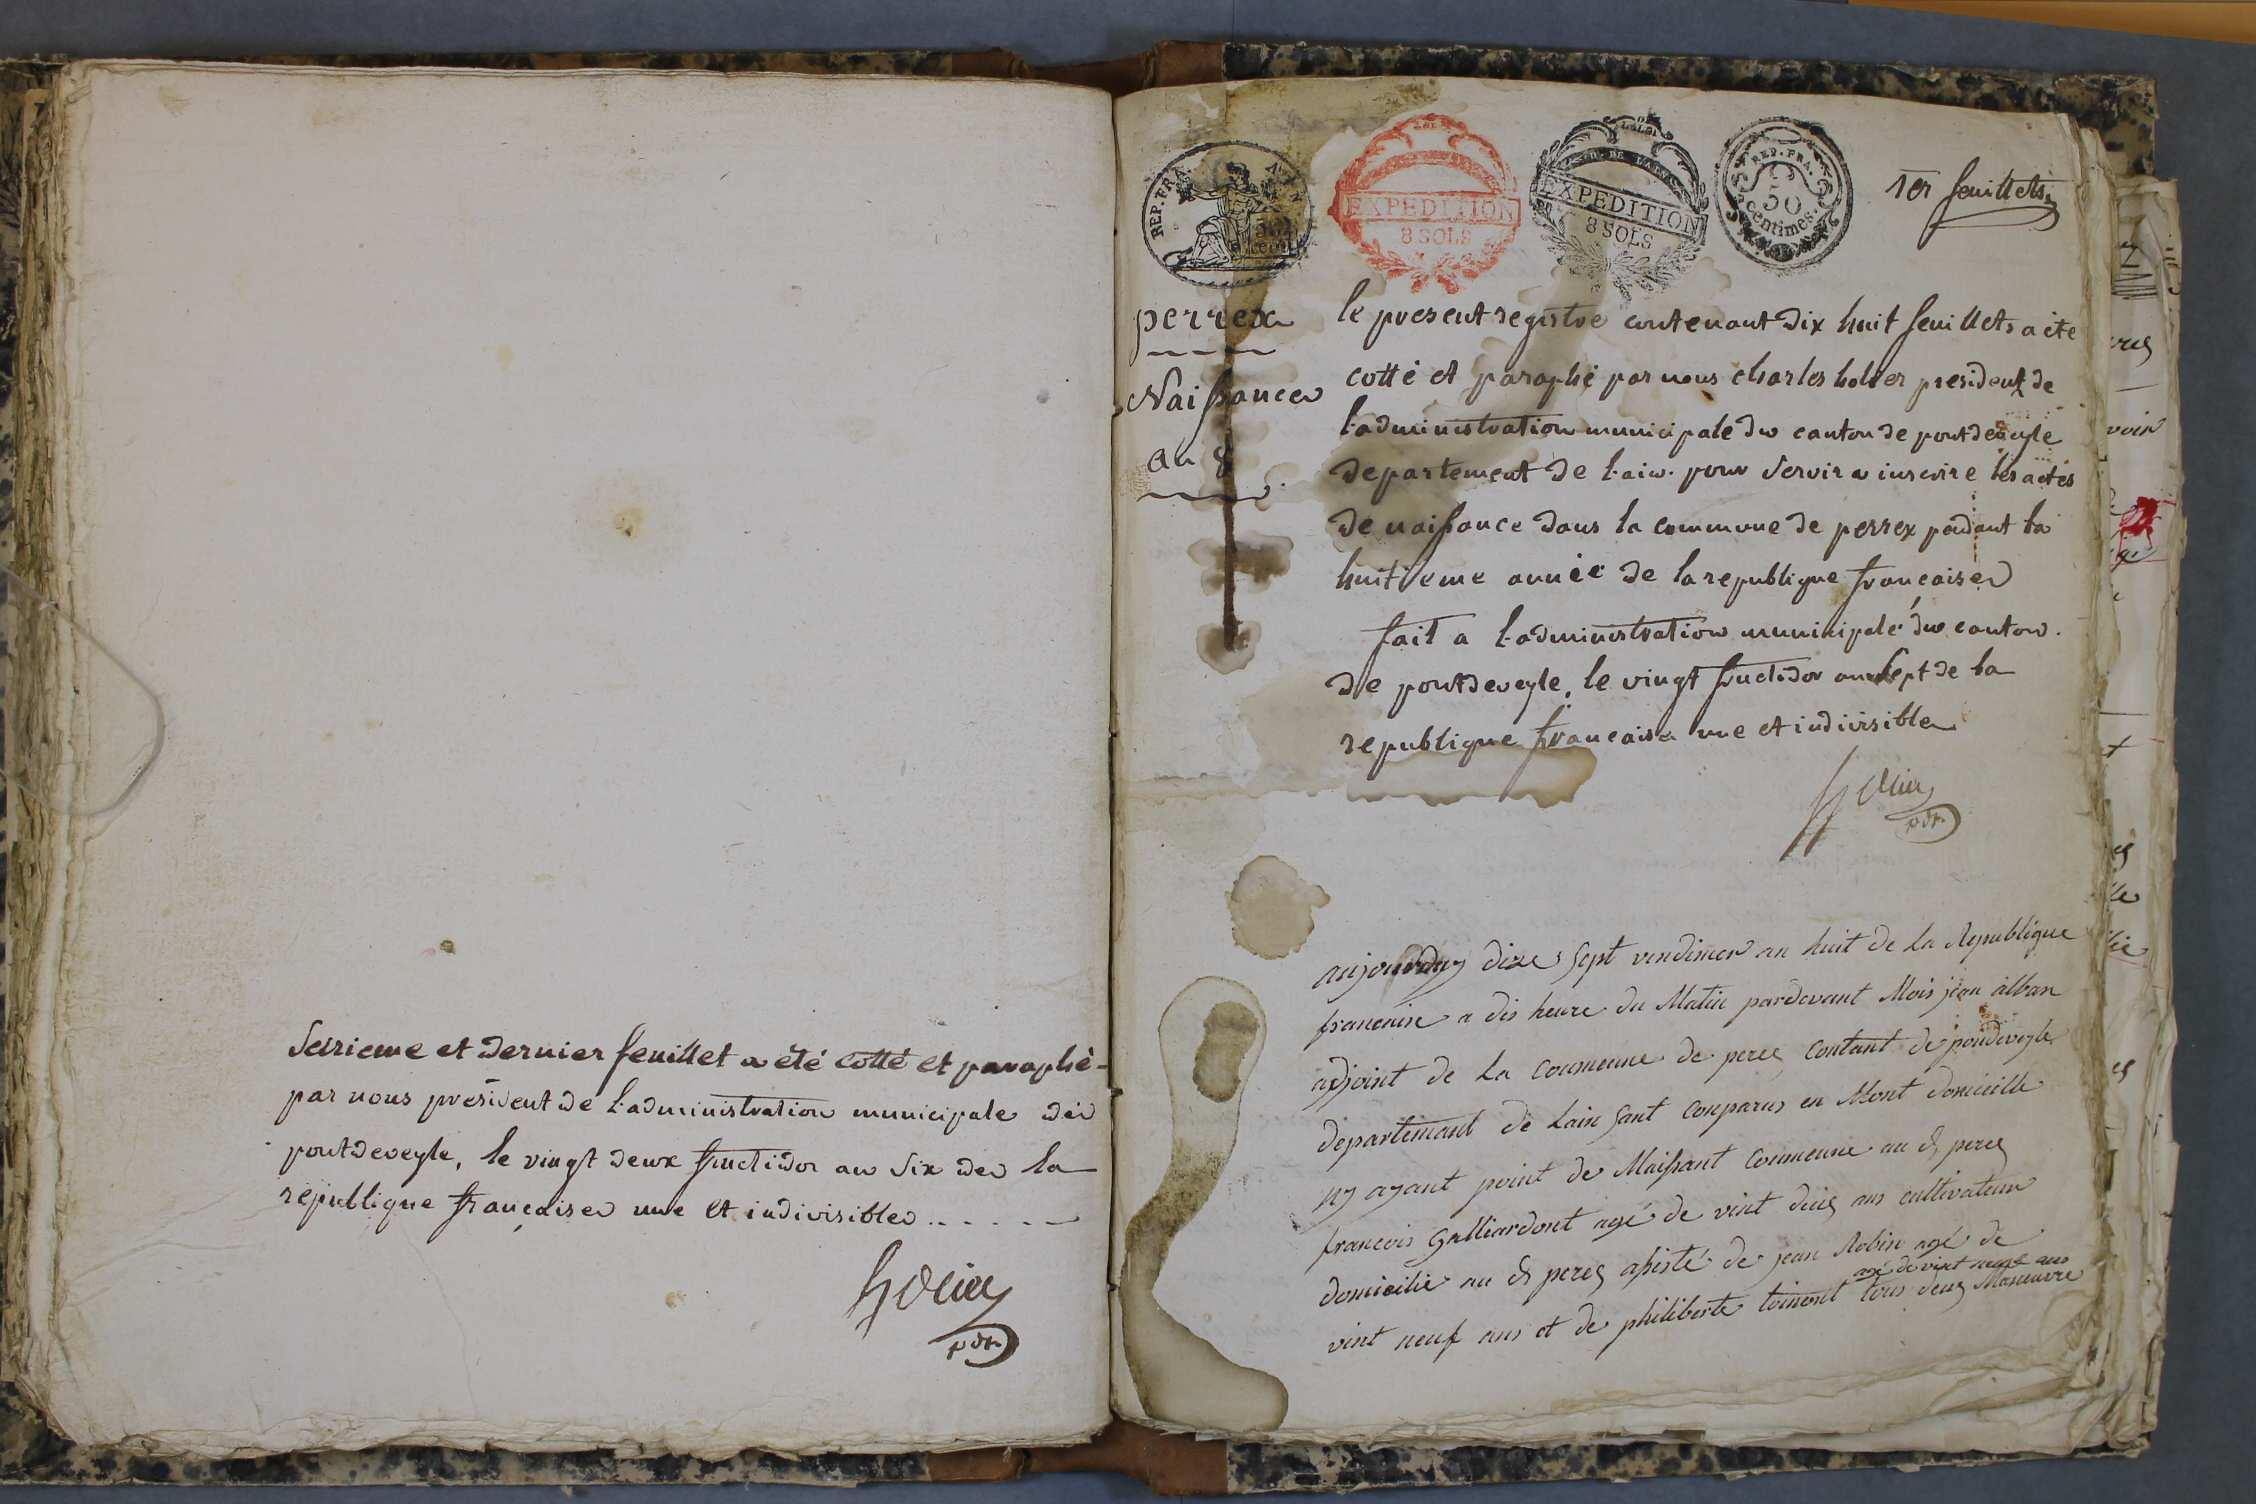 Seizieme et dernier feuillet a été cotté et paraphé
par nous président de l'administration municipale de
pontdeveyle, le vingt deux fructidor an six de la
république française une et indivisible
pdt
REP. FRA
EXPEDITION
8 SOLS
EXPEDITION
8 SOLS
REP. FRA.
50
centimes
1er feuillet
perrex
Naissance
an 8
le present registre contenant dix huit feuillets a été
cotté et paraphé par nous charles président de
l'administration municipale du canton de pontdeveyle
departement de l'ain pour servir a inscrire les actes
de naissance dans la commune de perrex pendant la
huitieme année de la republique française
fait a l'administration municipale du canton
de pontdeveyle, le vingt fructidor an sept de la
republique française une et indivisible
pdt
aujourduy dixe sept vendimer an huit de La Republique
francaise a dis heure du Matin pardevant Mois jean alban
adjoint de La Coumeune de perex Contant de pondeveyle
departemant de Lain Sant Conparus en Mont domicille
ny ayant point de Maissant Coumeune au d perex
francois Galliardont agé de vint deux ans cultivateur
domicilié au d perex assisté de jean Robin agé de
vint neuf ans et de philiberte toinont agé de vint neuf ans tous deux Maneuvre